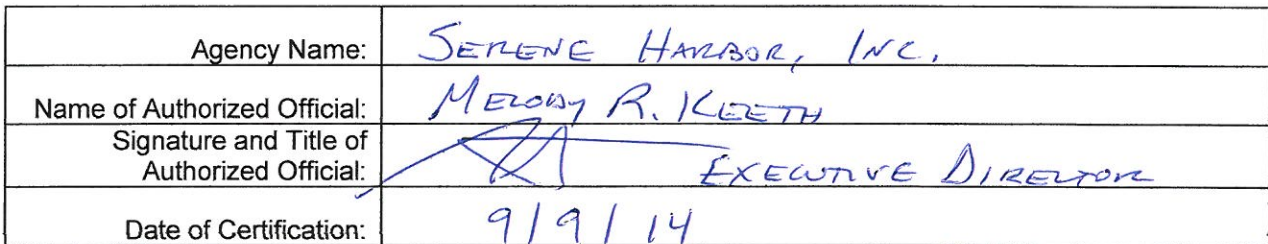 Agency Name: SERENE HARBOR, INC.
Name of Authorized Official: MELODY R. KEETH
Signature and Title of
Authorized Official: EXECUTIVE DIRECTOR
Date of Certification: 9/9/14